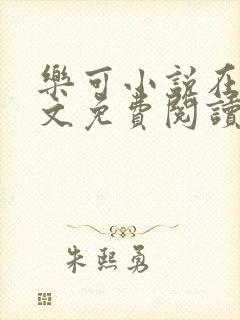 樂可小説在
文免費閱讀
朱熙勇